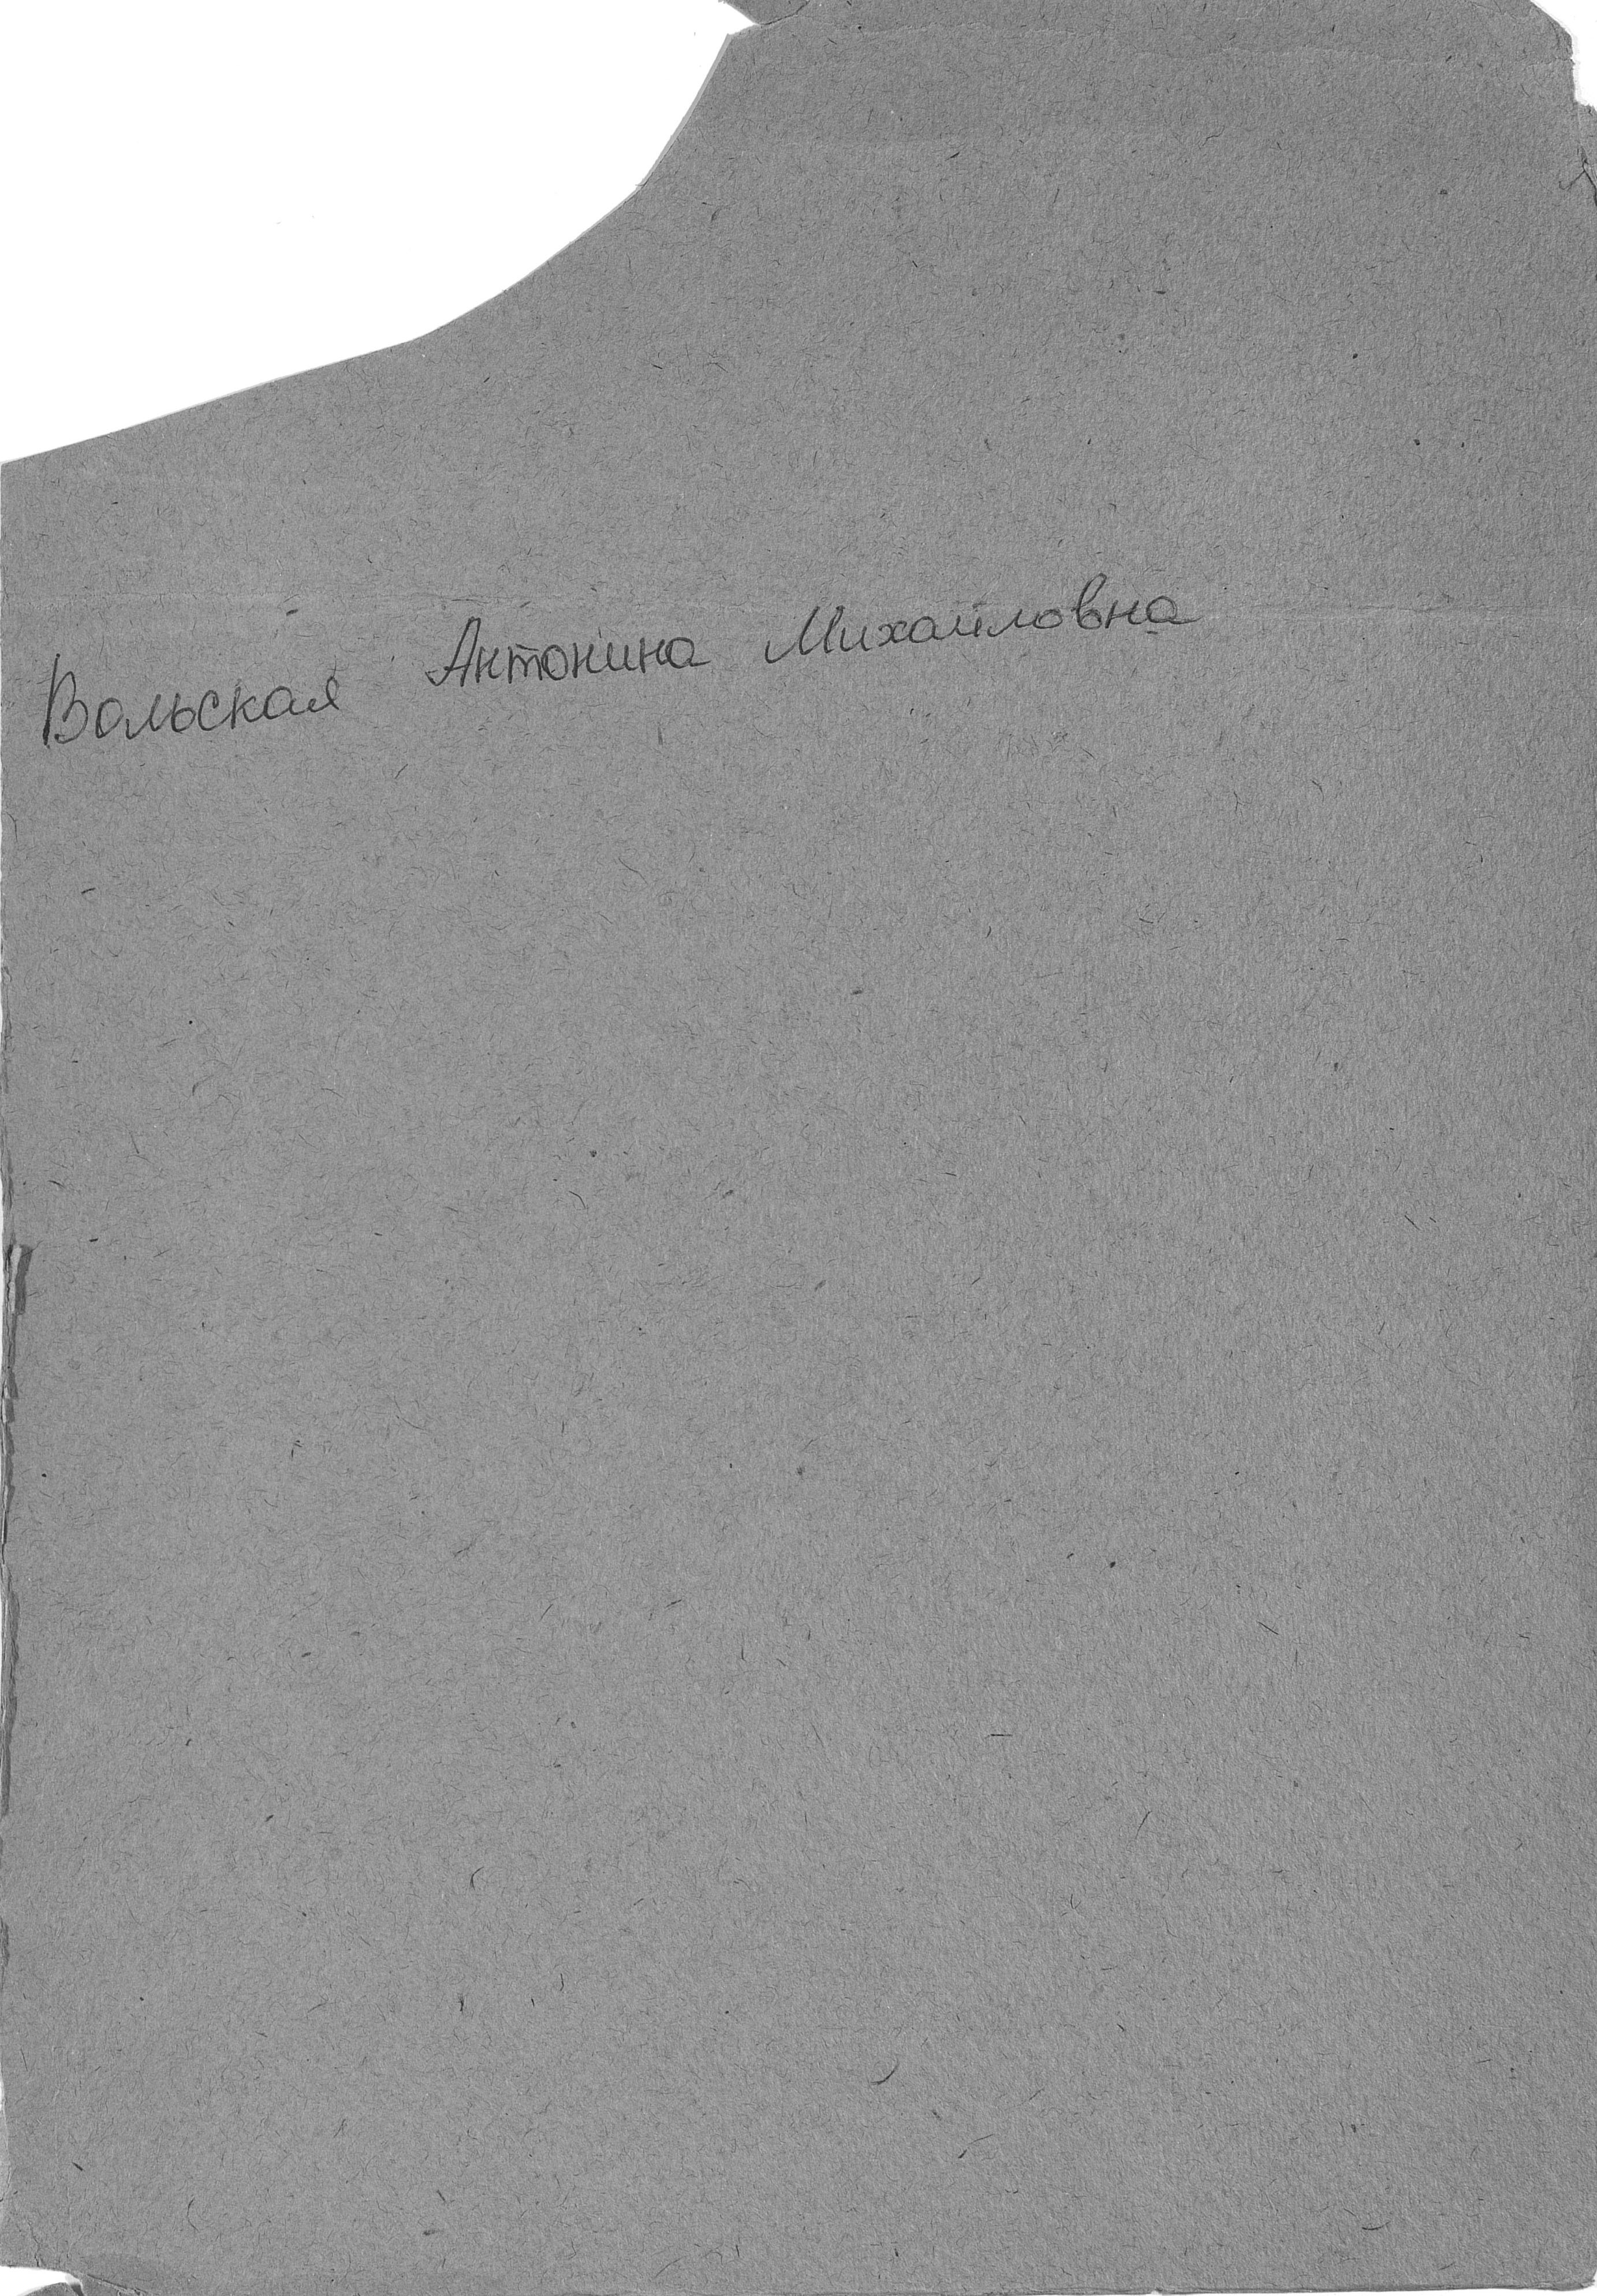 Вольская Антонина Михайловна